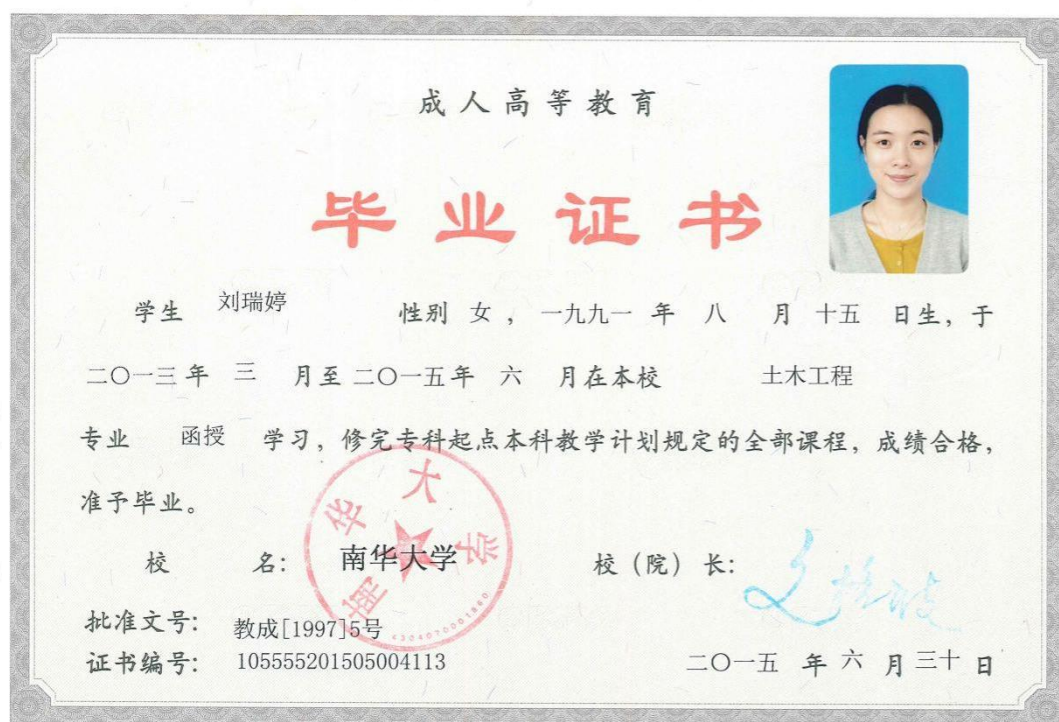 成人高等教育
毕业证书
学生 刘瑞婷 性别 女 ，一九九一 年 八 月 十五 日生，于
二〇一三年 三 月至二〇一五年 六 月在本校 土木工程
专业 函授 学习，修完专科起点本科教学计划规定的全部课程，成绩合格，
准予毕业。
校 名： 南华大学 校（院）长：
南华大学
4304070001860
批准文号： 教成[1997]5号
证书编号： 105555201505004113 二〇一五 年 六 月 三十 日